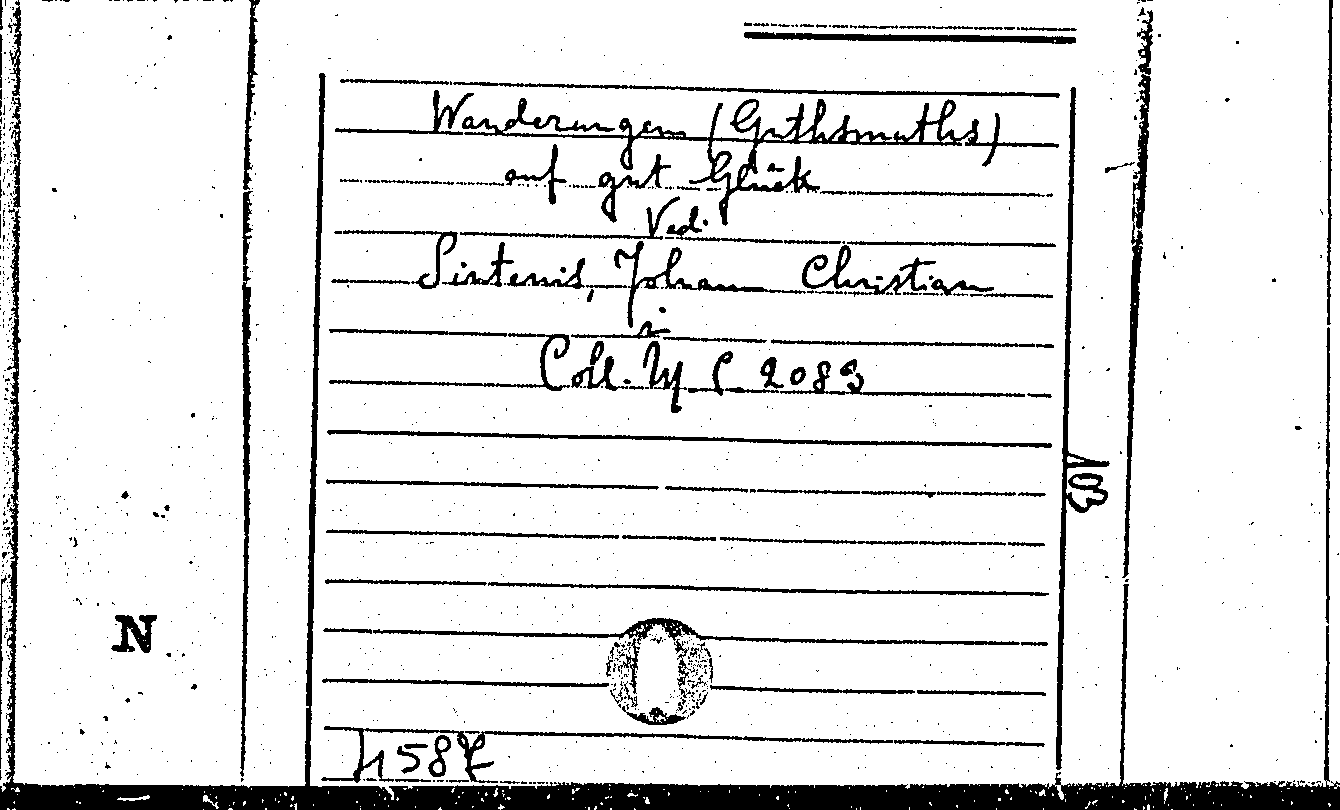 Wanderungen (Guthsmuths)
auf gut Glück
Ved.
Sintenis, Johann Christian
in
Coll. M. S. 2083
103
N
4587